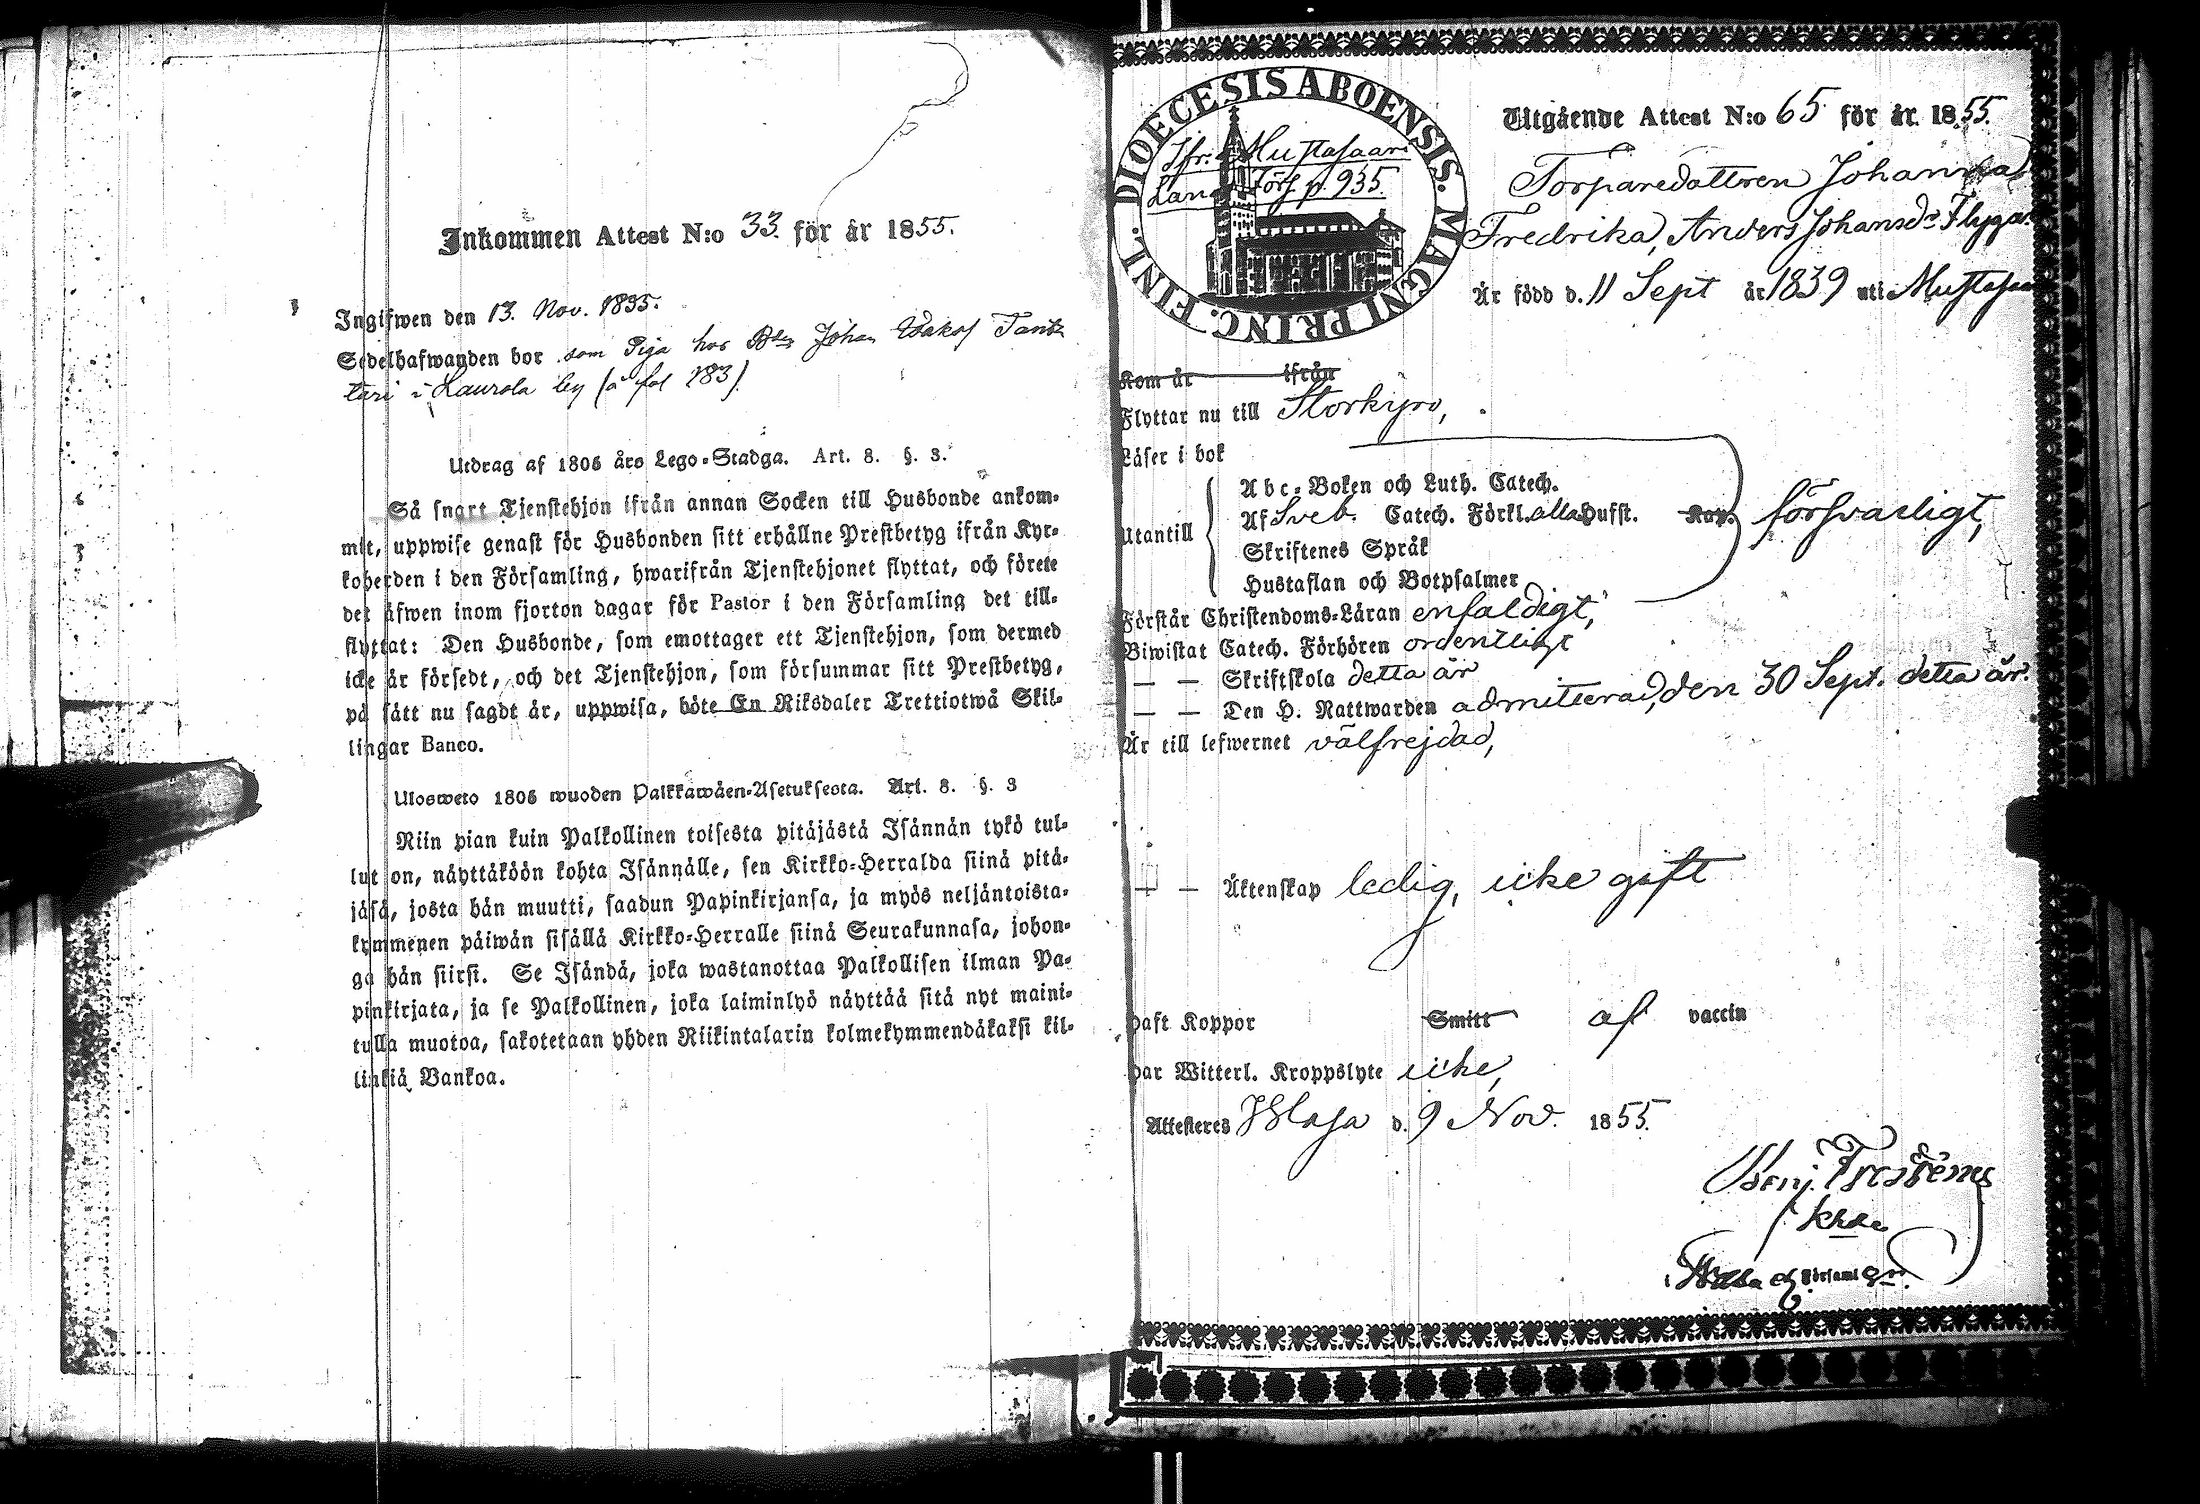 Inkommen Attest N:o 33. för år 1855.
Ingifwen den 13. Nov. 1855.
Sedelhafwanden bor som Piga hos Bdn Johan
i Laurola by (å fol 183).
Utdrag af 1805 års Lego-Stadga. Art. 8. §. 3.
Så snart Tjenstehjon ifrån annan Socken till Husbonde ankom-
mit, uppwise genast för Husbonden sitt erhållne Prestbetyg ifrån Kyr-
koherden i den Församling, hwarifrån Tjenstehjonet flyttat, och förete
det äfwen inom fjorton dagar för Pastor i den Församling det till-
flyttat: Den Husbonde, som emottager ett Tjenstehjon, som dermed
icke är försedt, och det Tjenstehjon, som försummar sitt Prestbetyg,
på sätt nu sagdt är, uppwisa, böte En Riksdaler Trettiotwå Skil-
lingar Banco.
Ulosweto 1805 wuoden Palkkawäen-Asetuksesta. Art. 8. §. 3
Niin pian kuin Palkollinen toisesta pitäjästä Isännän tykö tul-
lut on, näyttäköön kohta Isännälle, sen Kirkko-Herralda siinä pitä-
jäsä, josta hän muutti, saadun Papinkirjansa, ja myös neljäntoista-
kymmenen päiwän sisällä Kirkko-Herralle siinä Seurakunnasa, johon-
ga hän siirsi. Se Isändä, joka wastanottaa Palkollisen ilman Pa-
pinkirjata, ja se Palkollinen, joka laiminlyö näyttää sitä nyt maini-
tulla muotoa, sakotetaan yhden Riikintalarin kolmekymmendäkaksi kil-
linkiä Bankoa.
DIOECESIS ABOENSIS. MAGNI PRINC. FINL.
Jfr. Mustasaari
Lands Förs p. 935.
Utgående Attest N:o 65 för år 1855.
Torparedottren Johanna
Fredrika, Anders Johansdr Flygar
Är född d. 11 Sept år 1839 uti Mustasaa
Kom år ifrån
Flyttar nu till Storkyro,
Läser i bok
Utantill
Abc-Boken och Luth. Catech.
Af Sveb. Catech. Förkl. alla Hufst. Kap.
Skriftenes Språk
Hustaflan och Botpsalmer
försvarligt,
Förstår Christendoms-Läran enfaldigt,
Biwistat Catech. Förhören ordentligt
— — Skriftskola detta år
— — Den H. Nattwarden admitterad, den 30 Sept. detta år.
Är till lefwernet välfrejdad,
— — Äktenskap ledig, icke gift
Haft Koppor Smitt af vaccin
Har Witterl. Kroppslyte icke,
Attesteres Wasa d. 9 Nov. 1855.
i Församl